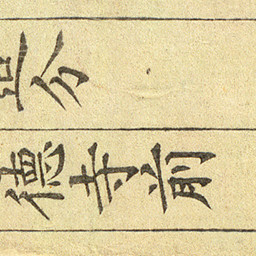 分
德寺前